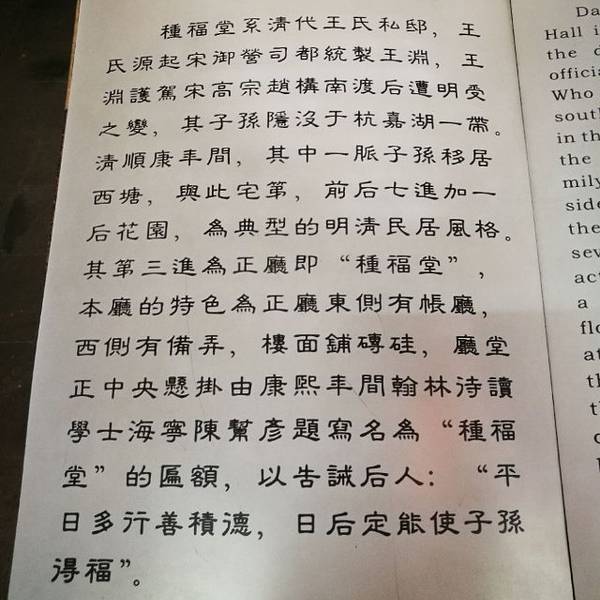 種福堂系清代王氏私邸，王
氏源起宋御營司都統製王淵，王
淵護駕宋高宗趙構南渡后遭明受
之變，其子孫隱沒于杭嘉湖一帶。
清順康年間，其中一脈子孫移居
西塘，與此宅第，前后七進加一
后花園，為典型的明清民居風格。
其第三進為正廳即“種福堂”，
本廳的特色為正廳東側有帳廳，
西側有備弄，樓面鋪磚硅，廳堂
正中央懸掛由康熙年間翰林待讀
學士海寧陳幫彥題寫名為“種福
堂”的匾額，以告誡后人：“平
日多行善積德，日后定能使子孫
得福”。
Da
Hall i
the d
officia
Who
south
in the
the
mily
side
the
sev
act
a
flo
at
th